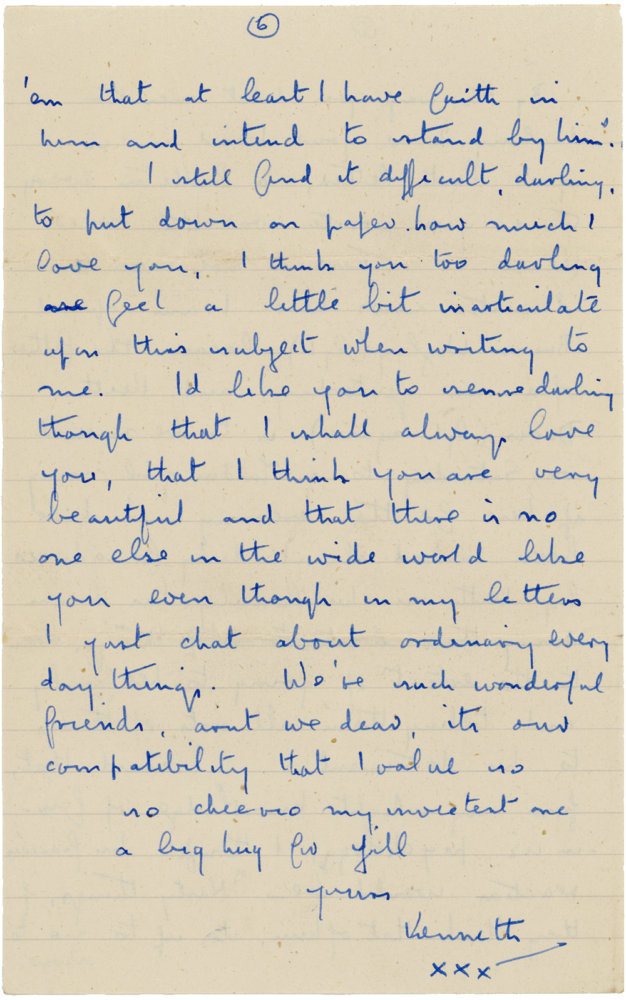 6
'em that at least I have faith in
him and intend to stand by him".
I still find it difficult, darling,
to put down on paper how much I
love you, I think you too darling
are feel a little bit inarticulate
upon this subject when writing to
me. I'd like you to sense darling
though that I shall always love
you, that I think you are very
beautiful and that there is no
one else in the wide world like
you even though in my letters
I just chat about ordinary every
day things. We've such wonderful
friends, arnt we dear, its our
compatibility that I value so
so cheerio my sweetest one
a big hug for Jill
yours
Kenneth
xxx